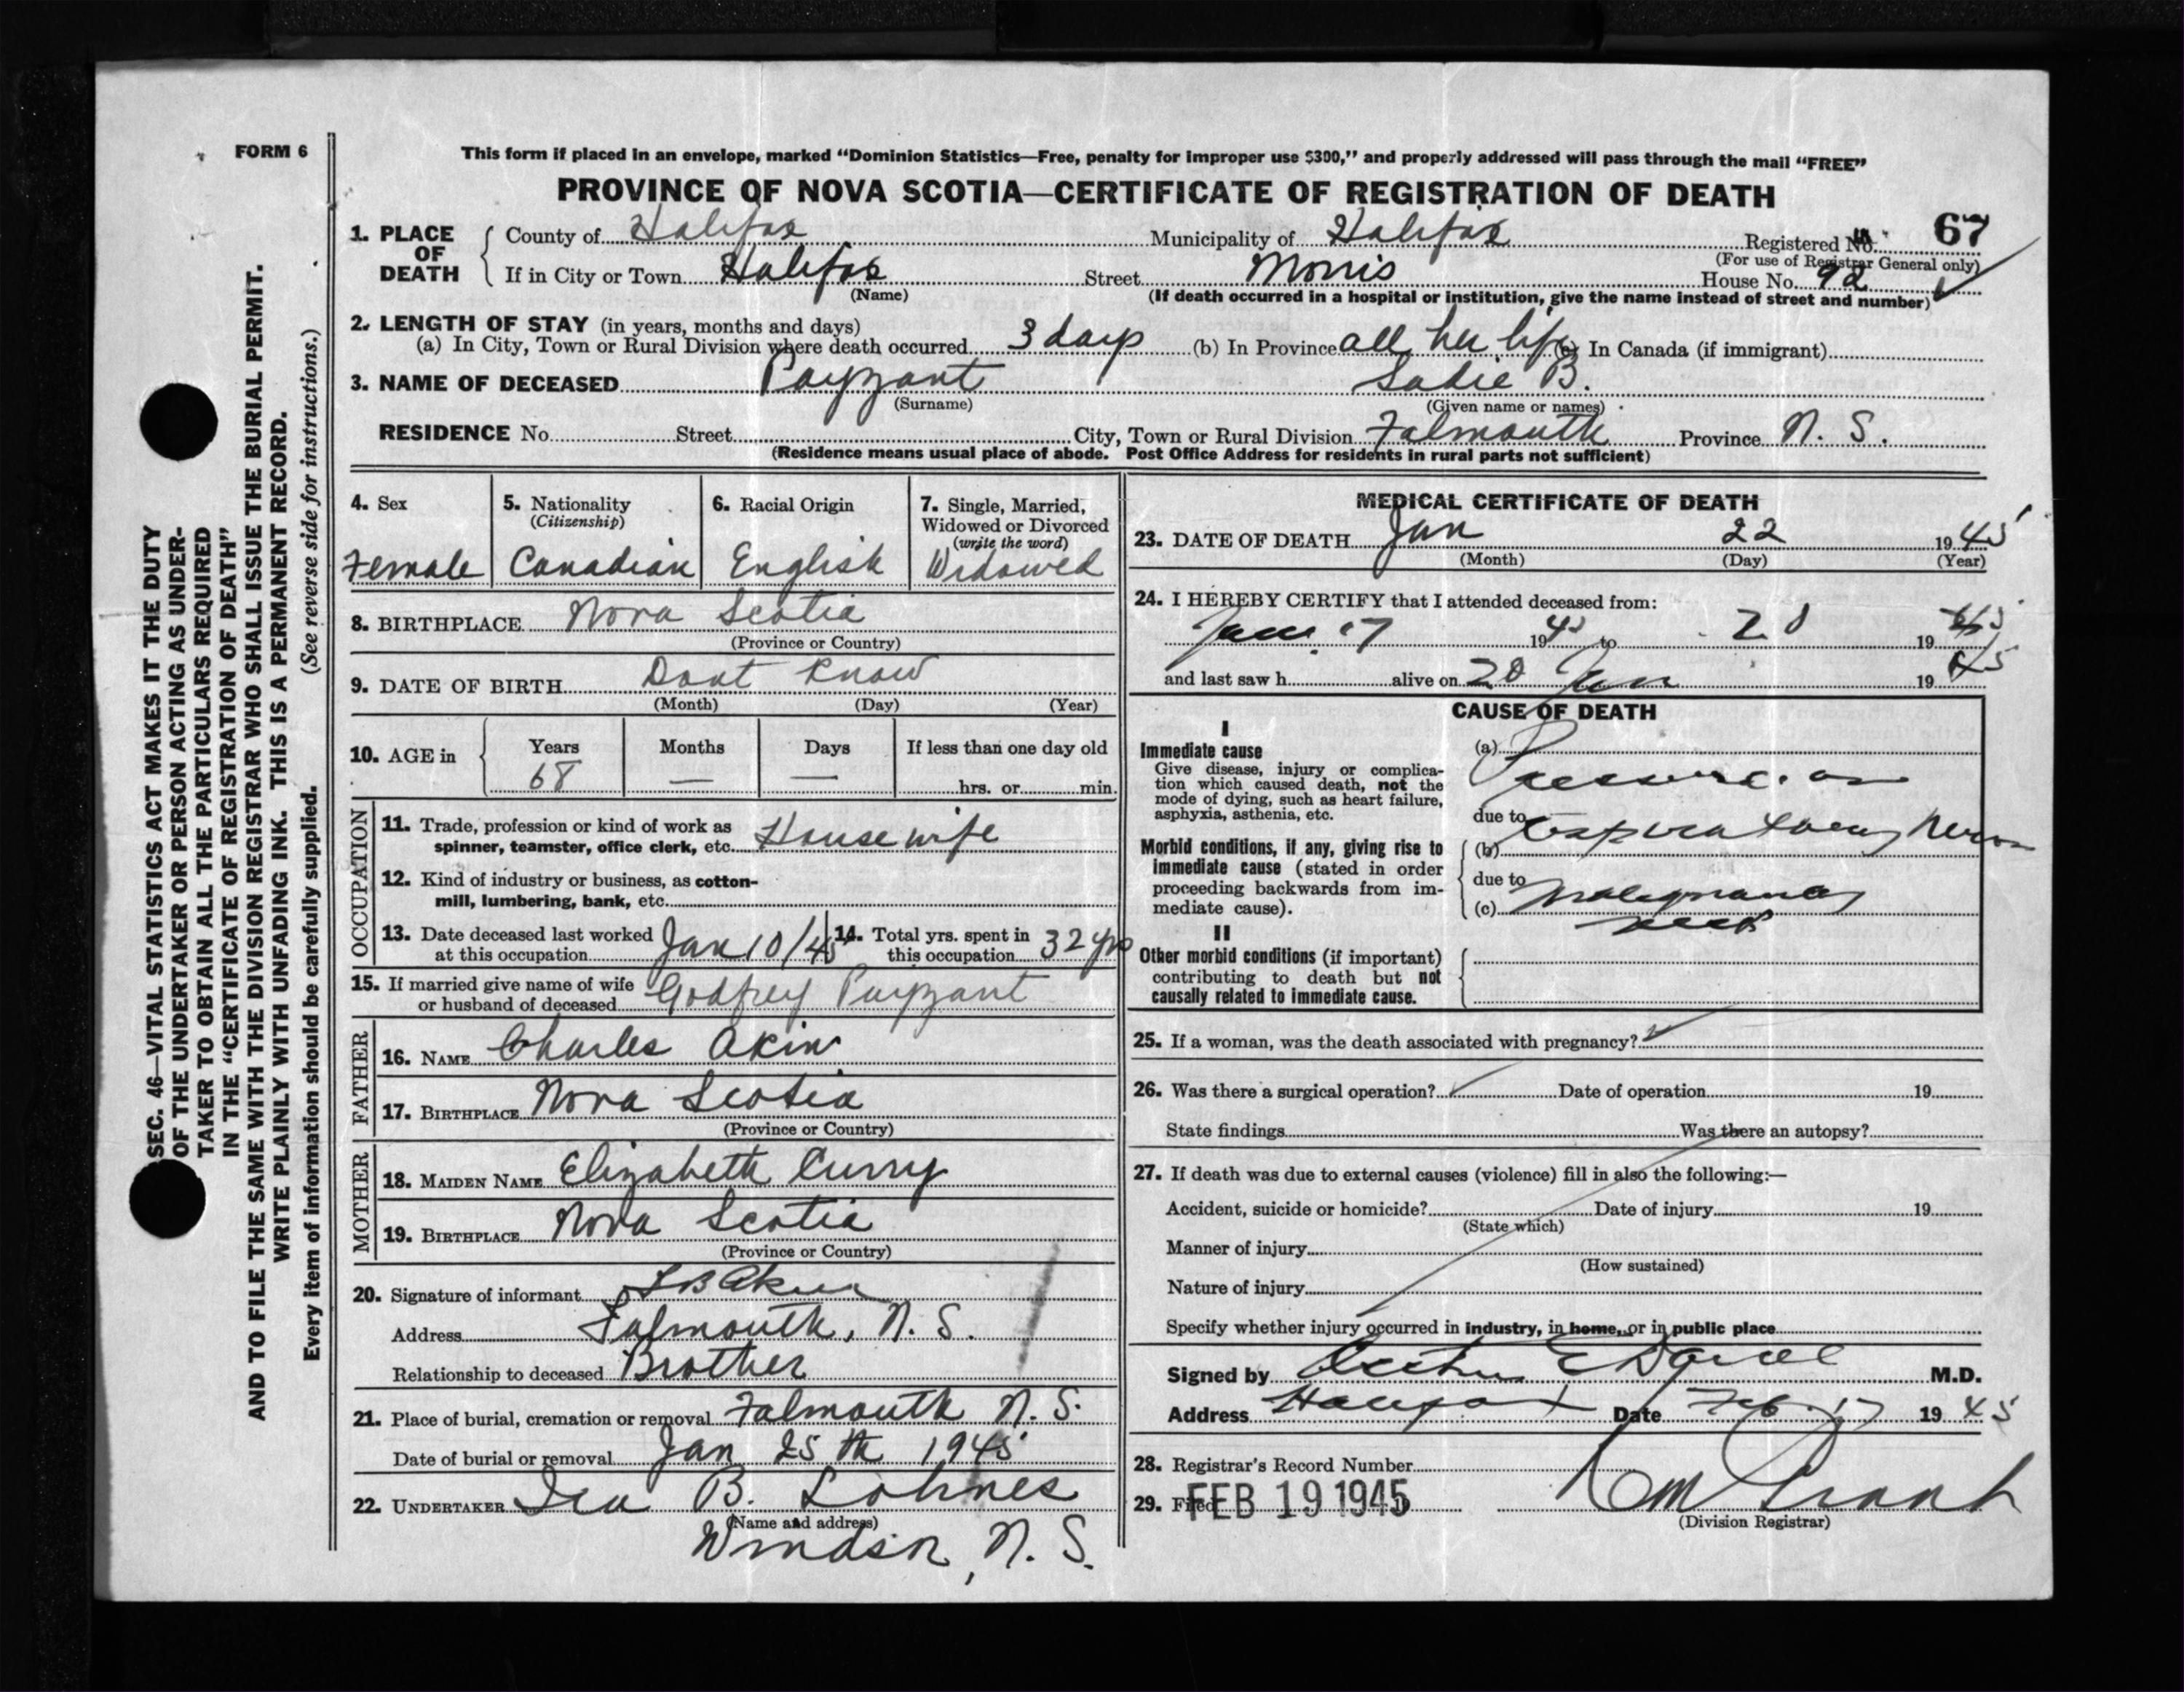 FORM 6
This form if placed in an envelope, marked “Dominion Statistics—Free, penalty for improper use $300,” and properly addressed will pass through the mail “FREE”
PROVINCE OF NOVA SCOTIA—CERTIFICATE OF REGISTRATION OF DEATH
1. PLACE OF DEATH
County of Halifax Municipality of Halifax Registered No. 67
(For use of Registrar General only)
If in City or Town Halifax Street Morris House No. 92
(Name) (If death occurred in a hospital or institution, give the name instead of street and number)
2. LENGTH OF STAY (in years, months and days)
(a) In City, Town or Rural Division where death occurred 3 days (b) In Province all her life (c) In Canada (if immigrant)
3. NAME OF DECEASED Payzant Sadie B.
(Surname) (Given name or names)
RESIDENCE No. Street City, Town or Rural Division Falmouth Province N. S.
(Residence means usual place of abode. Post Office Address for residents in rural parts not sufficient)
4. Sex
Female
5. Nationality
(Citizenship)
Canadian
6. Racial Origin
English
7. Single, Married,
Widowed or Divorced
(write the word)
Widowed
8. BIRTHPLACE Nova Scotia
(Province or Country)
9. DATE OF BIRTH Dont Know
(Month) (Day) (Year)
10. AGE in
Years Months Days If less than one day old
68 — — hrs. or min.
OCCUPATION
11. Trade, profession or kind of work as
spinner, teamster, office clerk, etc. Housewife
12. Kind of industry or business, as cotton-
mill, lumbering, bank, etc.
13. Date deceased last worked
at this occupation Jan 10/45
14. Total yrs. spent in
this occupation 32 yrs
15. If married give name of wife
or husband of deceased Godfrey Payzant
FATHER
16. NAME Charles Akin
17. BIRTHPLACE Nova Scotia
(Province or Country)
MOTHER
18. MAIDEN NAME Elizabeth Curry
19. BIRTHPLACE Nova Scotia
(Province or Country)
20. Signature of informant Akin
Address Falmouth, N. S.
Relationship to deceased Brother
21. Place of burial, cremation or removal Falmouth N. S.
Date of burial or removal Jan 25th 1945
22. UNDERTAKER Ira B. Lohnes
(Name and address)
Windsor, N. S.
MEDICAL CERTIFICATE OF DEATH
23. DATE OF DEATH Jan 22 1945
(Month) (Day) (Year)
24. I HEREBY CERTIFY that I attended deceased from:
Jan. 17 1945 to 20 19 45
and last saw h alive on 20 Jan 19 45
CAUSE OF DEATH
I
Immediate cause
Give disease, injury or complica-
tion which caused death, not the
mode of dying, such as heart failure,
asphyxia, asthenia, etc.
(a) Pressure on
due to
respiratory
Morbid conditions, if any, giving rise to
immediate cause (stated in order
proceeding backwards from im-
mediate cause).
(b)
due to
(c) malignancy
neck
II
Other morbid conditions (if important)
contributing to death but not
causally related to immediate cause.
25. If a woman, was the death associated with pregnancy?
26. Was there a surgical operation? Date of operation 19
State findings Was there an autopsy?
27. If death was due to external causes (violence) fill in also the following:—
Accident, suicide or homicide? Date of injury 19
(State which)
Manner of injury
(How sustained)
Nature of injury
Specify whether injury occurred in industry, in home, or in public place
Signed by M.D.
Address Halifax Date Feb. 17 19 45
28. Registrar's Record Number
29. Filed FEB 19 1945
(Division Registrar)
SEC. 46—VITAL STATISTICS ACT MAKES IT THE DUTY
OF THE UNDERTAKER OR PERSON ACTING AS UNDER-
TAKER TO OBTAIN ALL THE PARTICULARS REQUIRED
IN THE “CERTIFICATE OF REGISTRATION OF DEATH”
AND TO FILE THE SAME WITH THE DIVISION REGISTRAR WHO SHALL ISSUE THE BURIAL PERMIT.
WRITE PLAINLY WITH UNFADING INK. THIS IS A PERMANENT RECORD.
Every item of information should be carefully supplied. (See reverse side for instructions.)